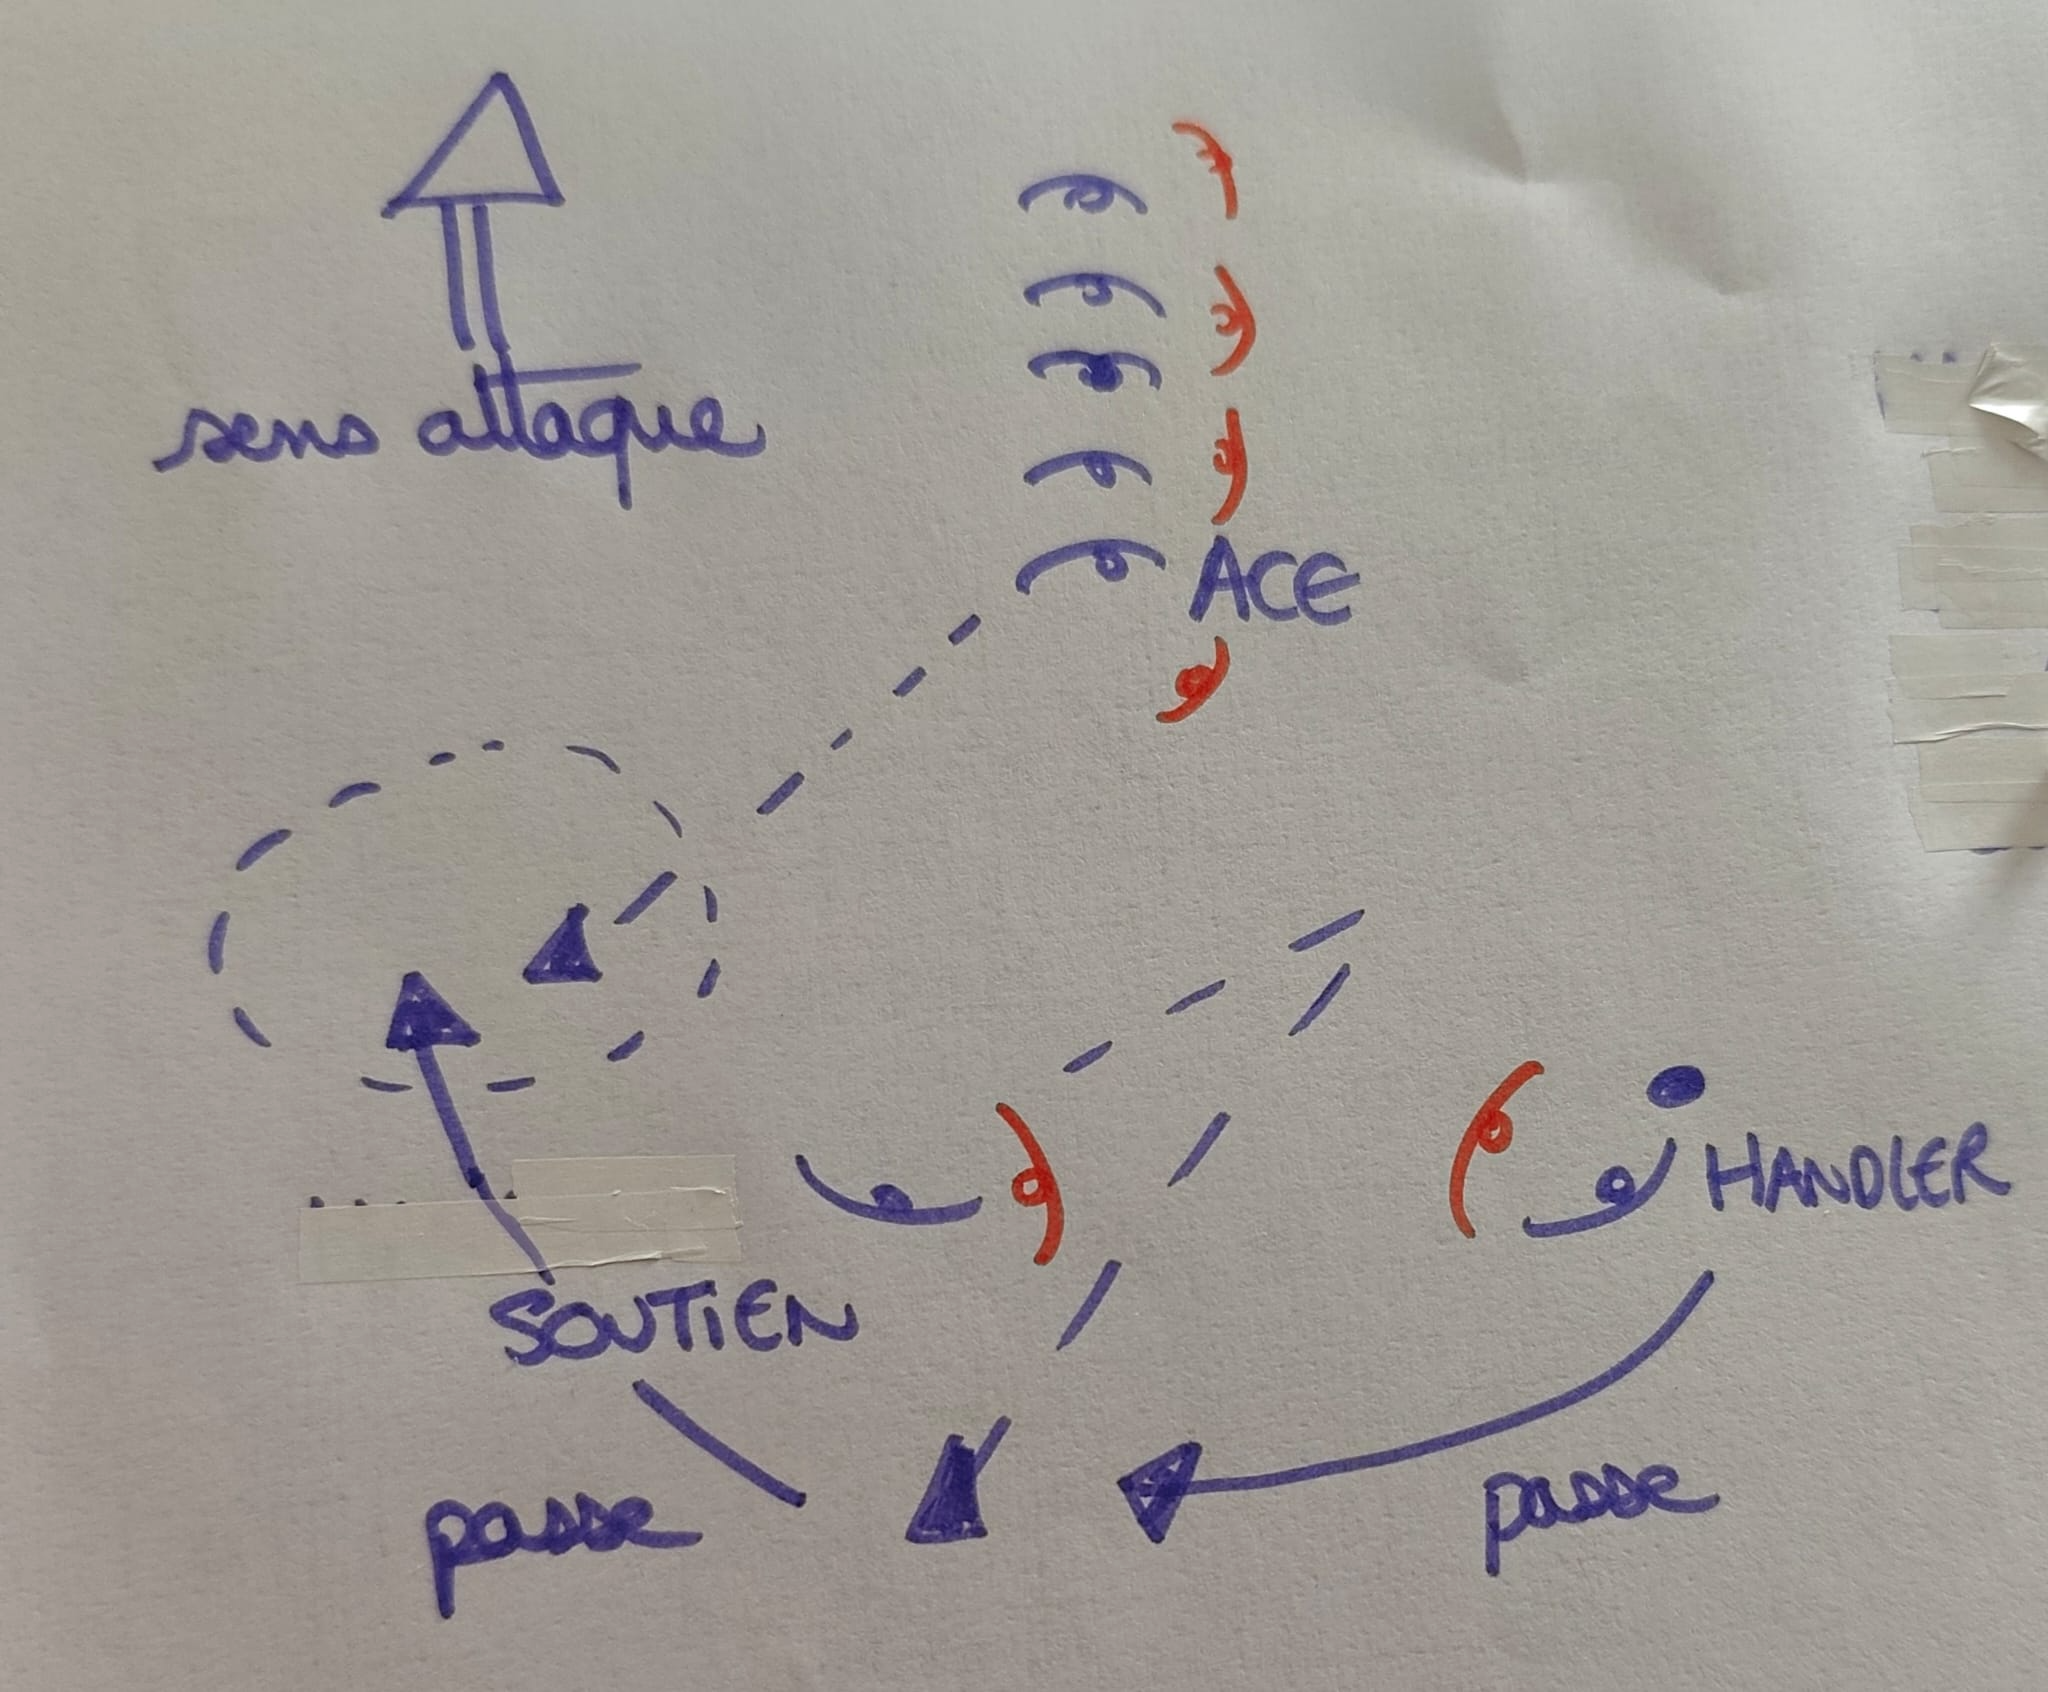 sens attaque
ACE
HANDLER
SOUTIEN
passe
passe